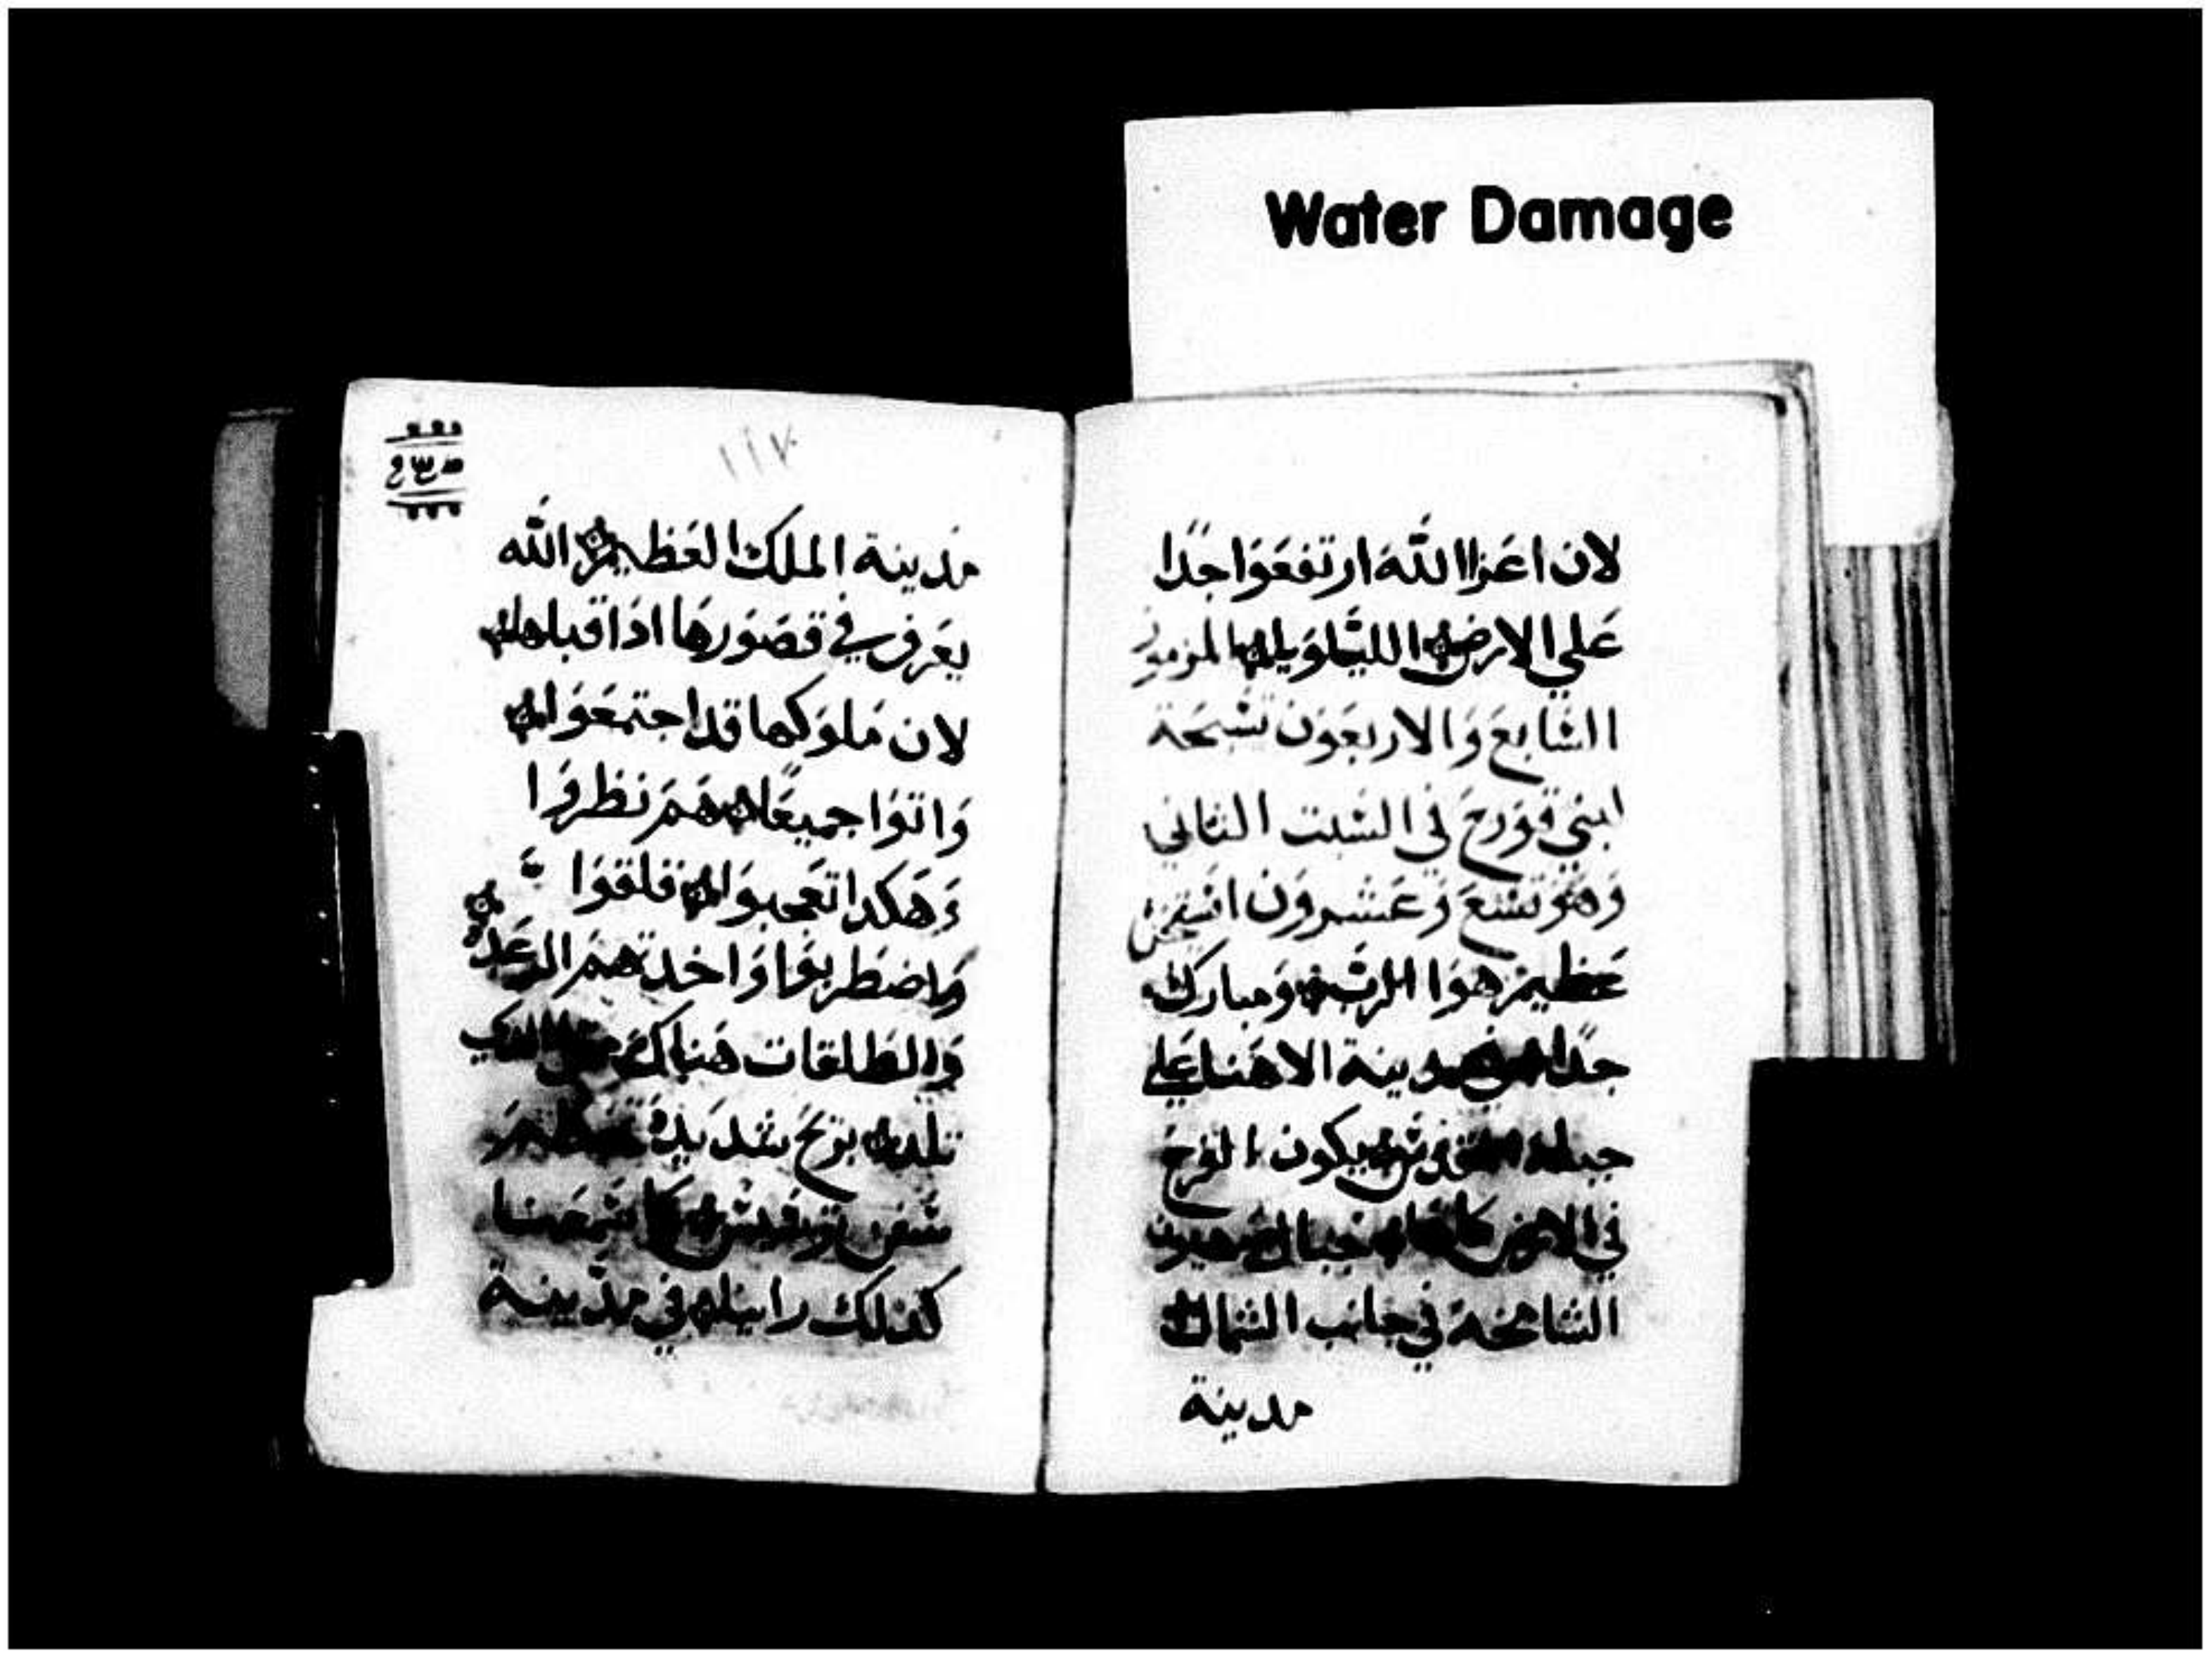 Water Damage
لان اعزاالله ارتفعوا جدا
علي الارض الليلويا المزمور
السابع والاربعون تسبحة
لبني قورح في السبت الثاني
وهو تسع وعشرون استخن
عظيم هوا الرب ومبارك
جدا في مدينة الاهنا علي
جبله يكون الفرح
في الارض جبال صهيون
الشامخة في جانب الشمال
مدينة
١١٧
مدينة الملك العظيم الله
يعرف في قصورها اذا قبلها
لان ملوكها قد اجتمعوا
واتوا جميعا هم نظروا
وهكدا تعجبوا فلقوا
واضطربوا واخدتهم الرعدة
والطلقات هناك
تلد بريح شديدة
سفن ترشيش كما سمعنا
كذلك راينا في مدينة